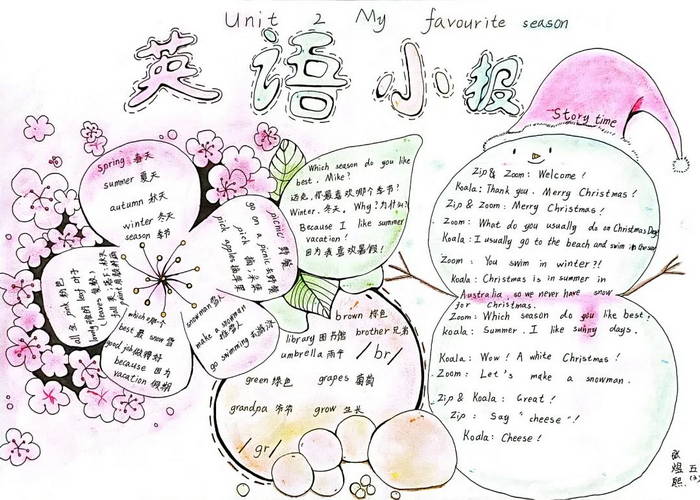 Unit 2 My favourite season
英语小报
Story time
spring 春天
summer 夏天
autumn 秋天
winter 冬天
season 季节
picnic 野餐
go on a picnic 去野餐
pick 摘;采集
pick apples 摘苹果
snowman 雪人
make a snowman
堆雪人
go swimming 去游泳
which 哪一个
best 最 snow 雪
good job 做得好
because 因为
vacation 假期
pink 粉色
leaf 叶子
Which season do you like
best, Mike?
迈克,你最喜欢哪个季节?
Winter. 冬天。 Why? 为什么?
Because I like summer
vacation!
因为我喜欢暑假!
brown 棕色
library 图书馆 brother 兄弟
umbrella 雨伞 /br/
green 绿色 grapes 葡萄
grandpa 爷爷 grow 生长
/gr/
Zip & Zoom: Welcome!
Koala: Thank you. Merry Christmas!
Zip & Zoom: Merry Christmas!
Zoom: What do you usually do on Christmas Day?
Koala: I usually go to the beach and swim in the sea.
Zoom: You swim in winter?!
Koala: Christmas is in summer in
Australia, so we never have snow
for Christmas.
Zoom: Which season do you like best?
koala: Summer. I like sunny days.
Koala: Wow! A white Christmas!
Zoom: Let's make a snowman.
Zip & Koala: Great!
Zip: Say "cheese"!
Koala: Cheese!